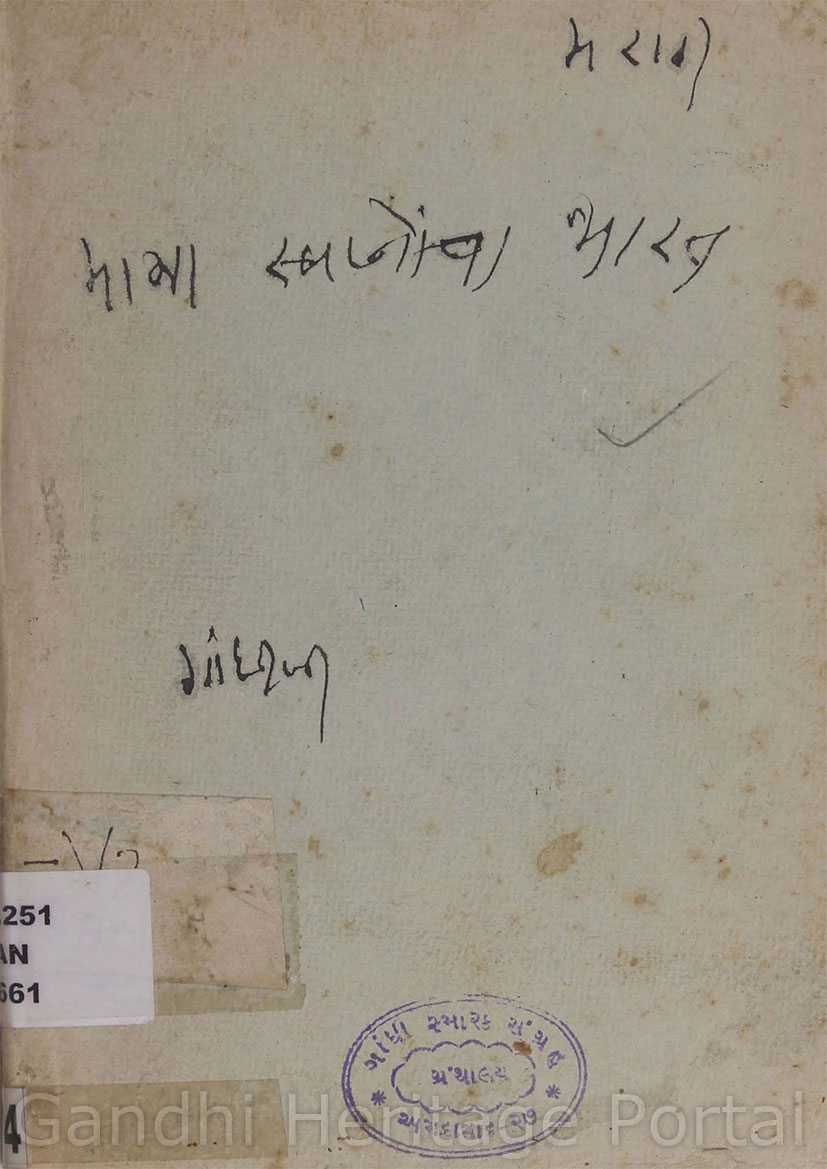 મરાઠી
માઝ્યા સ્વપ્નાંચા ભારત
ગાંધીજી
251
AN
661
ગાંધી સ્મારક સંગ્રહ
ગ્રંથાલય
* અમદાવાદ-૨૭ *
4
Gandhi Heritage Portal